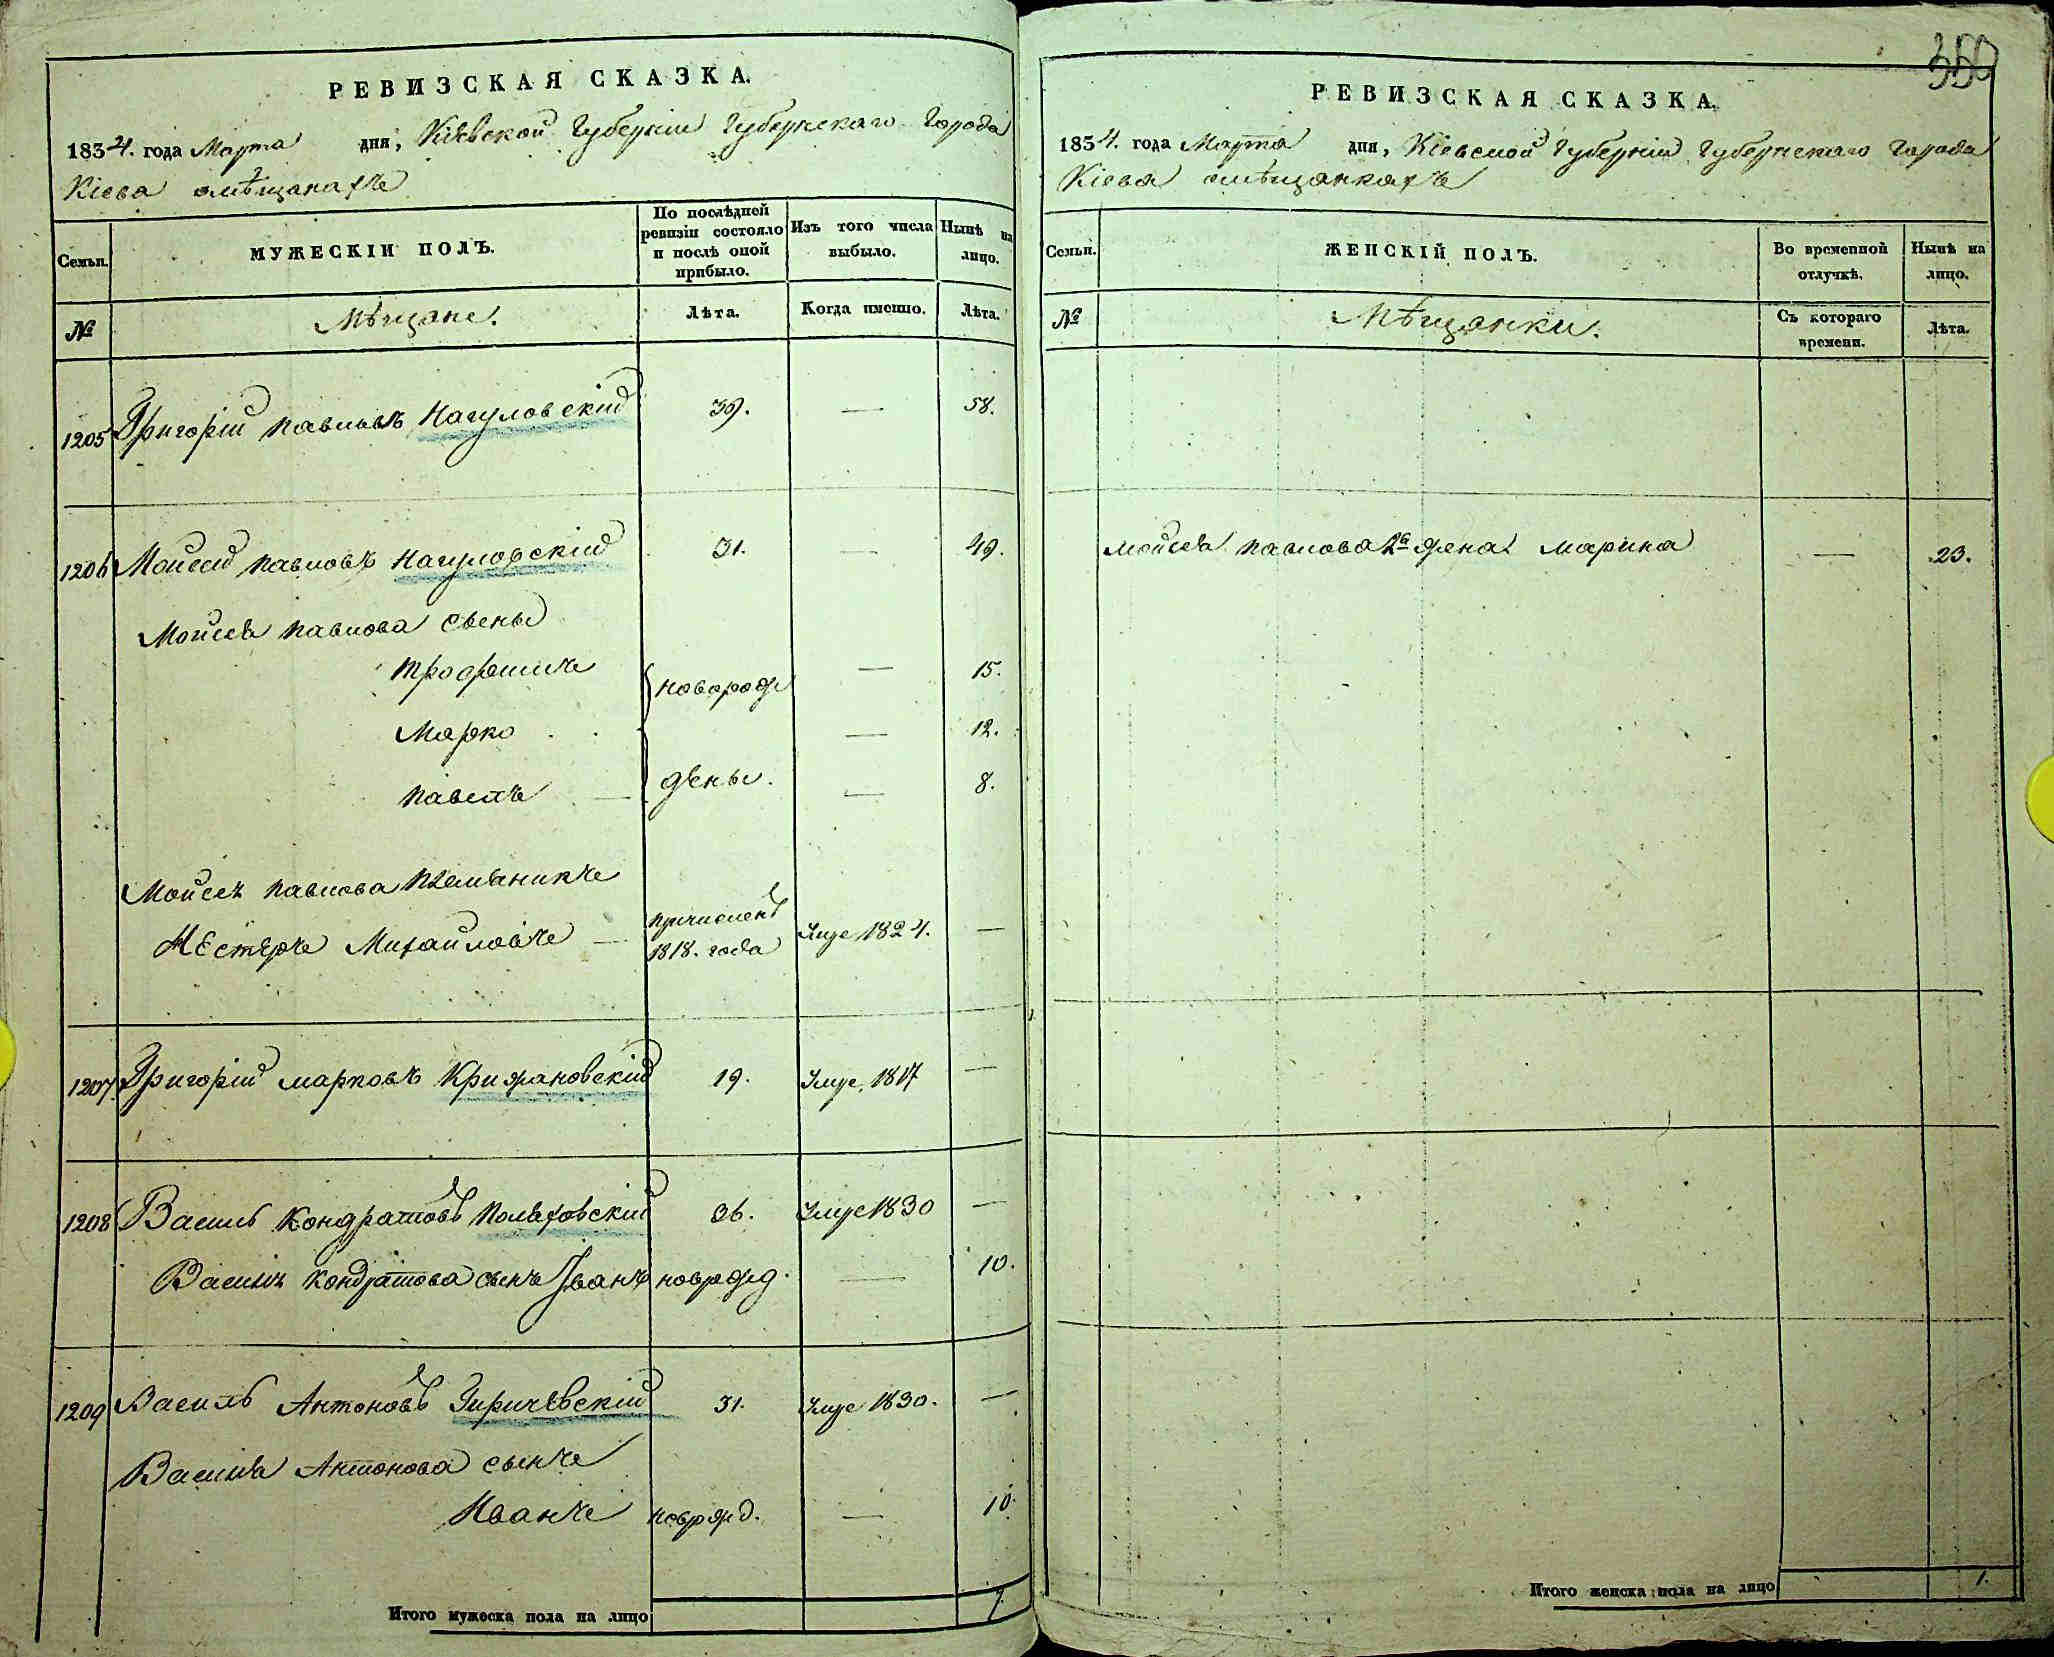 РЕВИЗСКАЯ СКАЗКА.
1834. года Марта дня, Кіевской Губерніи Губернскаго Города
Кіева омѣщанахъ
Семьи.
МУЖЕСКІЙ ПОЛЪ.
По послѣдней ревизіи состояло и послѣ оной прибыло.
Изъ того числа выбыло.
Нынѣ на лицо.
№
Мѣщане.
Лѣта.
Когда именно.
Лѣта.
1205 Григорій Павловъ Нагуловскій 39. — 58.
1206 Мойсей Павловъ Нагуловскій 31. — 49.
Мойсея Павлова сыны
Трофимъ новорож — 15.
Марко — 12.
Павелъ дены. — 8.
Мойсея Павлова племяникъ
Нестеръ Михайловъ — причисленъ 1818. года Умре 1824. —
1207 Григорій Марковъ Крижановскій 19. Умре, 1817 —
1208 Василь Кондратовъ Поляховскій 36. Умре 1830 —
Василя Кондратова сынъ Іванъ новрожд. — 10.
1209 Василь Антоновъ 31. Умре 1830. —
Василя Антонова сынъ
Иванъ новрожд. — 10.
Итого мужеска пола на лицо 7.
350
РЕВИЗСКАЯ СКАЗКА.
1834. года Марта дня, Кіевской Губерніи Губернскаго Города
Кіева омѣщанкахъ
Семьи.
ЖЕНСКІЙ ПОЛЪ.
Во временной отлучкѣ.
Нынѣ на лицо.
№
Мѣщанки.
Съ котораго времени.
Лѣта.
Мойсея Павлова 2а жена Марина — 23.
Итого женска пола на лицо 1.